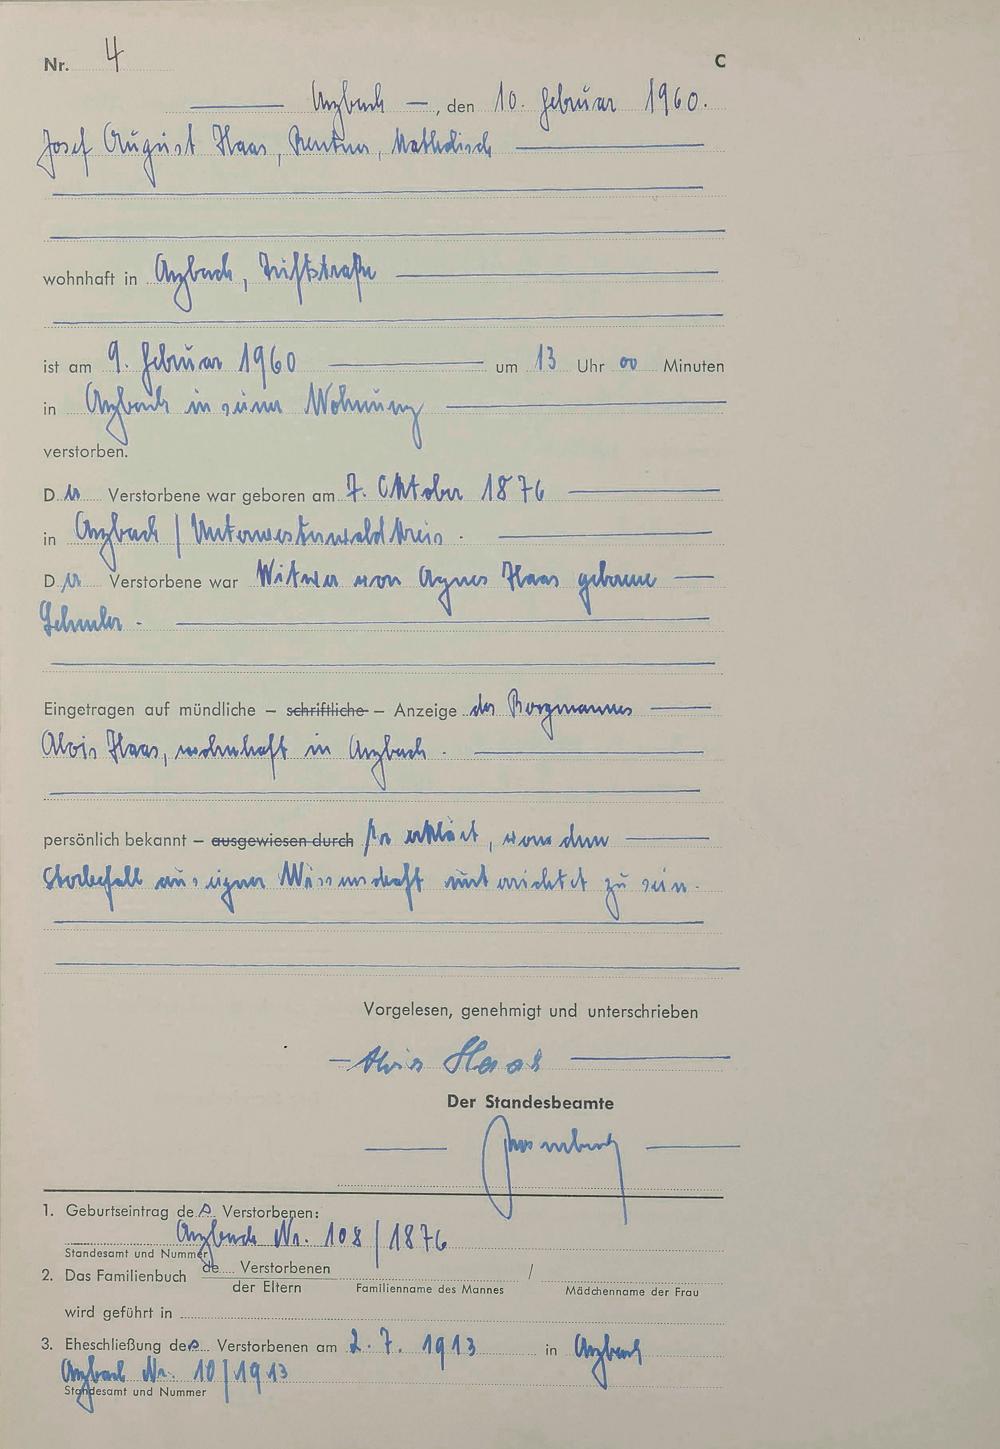 Nr. 4 C
Arzbach, den 10. Februar 1960.
Josef August Haas, Rentner, katholisch
wohnhaft in Arzbach, Triftstraße
ist am 9. Februar 1960 um 13 Uhr 00 Minuten
in Arzbach in seiner Wohnung
verstorben.
Der Verstorbene war geboren am 7. Oktober 1876
in Arzbach / Unterwesterwaldkreis.
Der Verstorbene war Witwer von Agnes Haas geborene
Eingetragen auf mündliche – schriftliche – Anzeige des Bergmannes
Alois Haas, wohnhaft in Arzbach.
persönlich bekannt – ausgewiesen durch Er erklärt, von dem
Sterbefall aus eigner Wissenschaft unterrichtet zu sein.
Vorgelesen, genehmigt und unterschrieben
Alois Haas
Der Standesbeamte
1. Geburtseintrag des Verstorbenen:
Arzbach Nr. 108/1876
Standesamt und Nummer
2. Das Familienbuch de Verstorbenen /
der Eltern Familienname des Mannes Mädchenname der Frau
wird geführt in
3. Eheschließung des Verstorbenen am 2.7.1913 in Arzbach
Arzbach Nr. 10/1913
Standesamt und Nummer